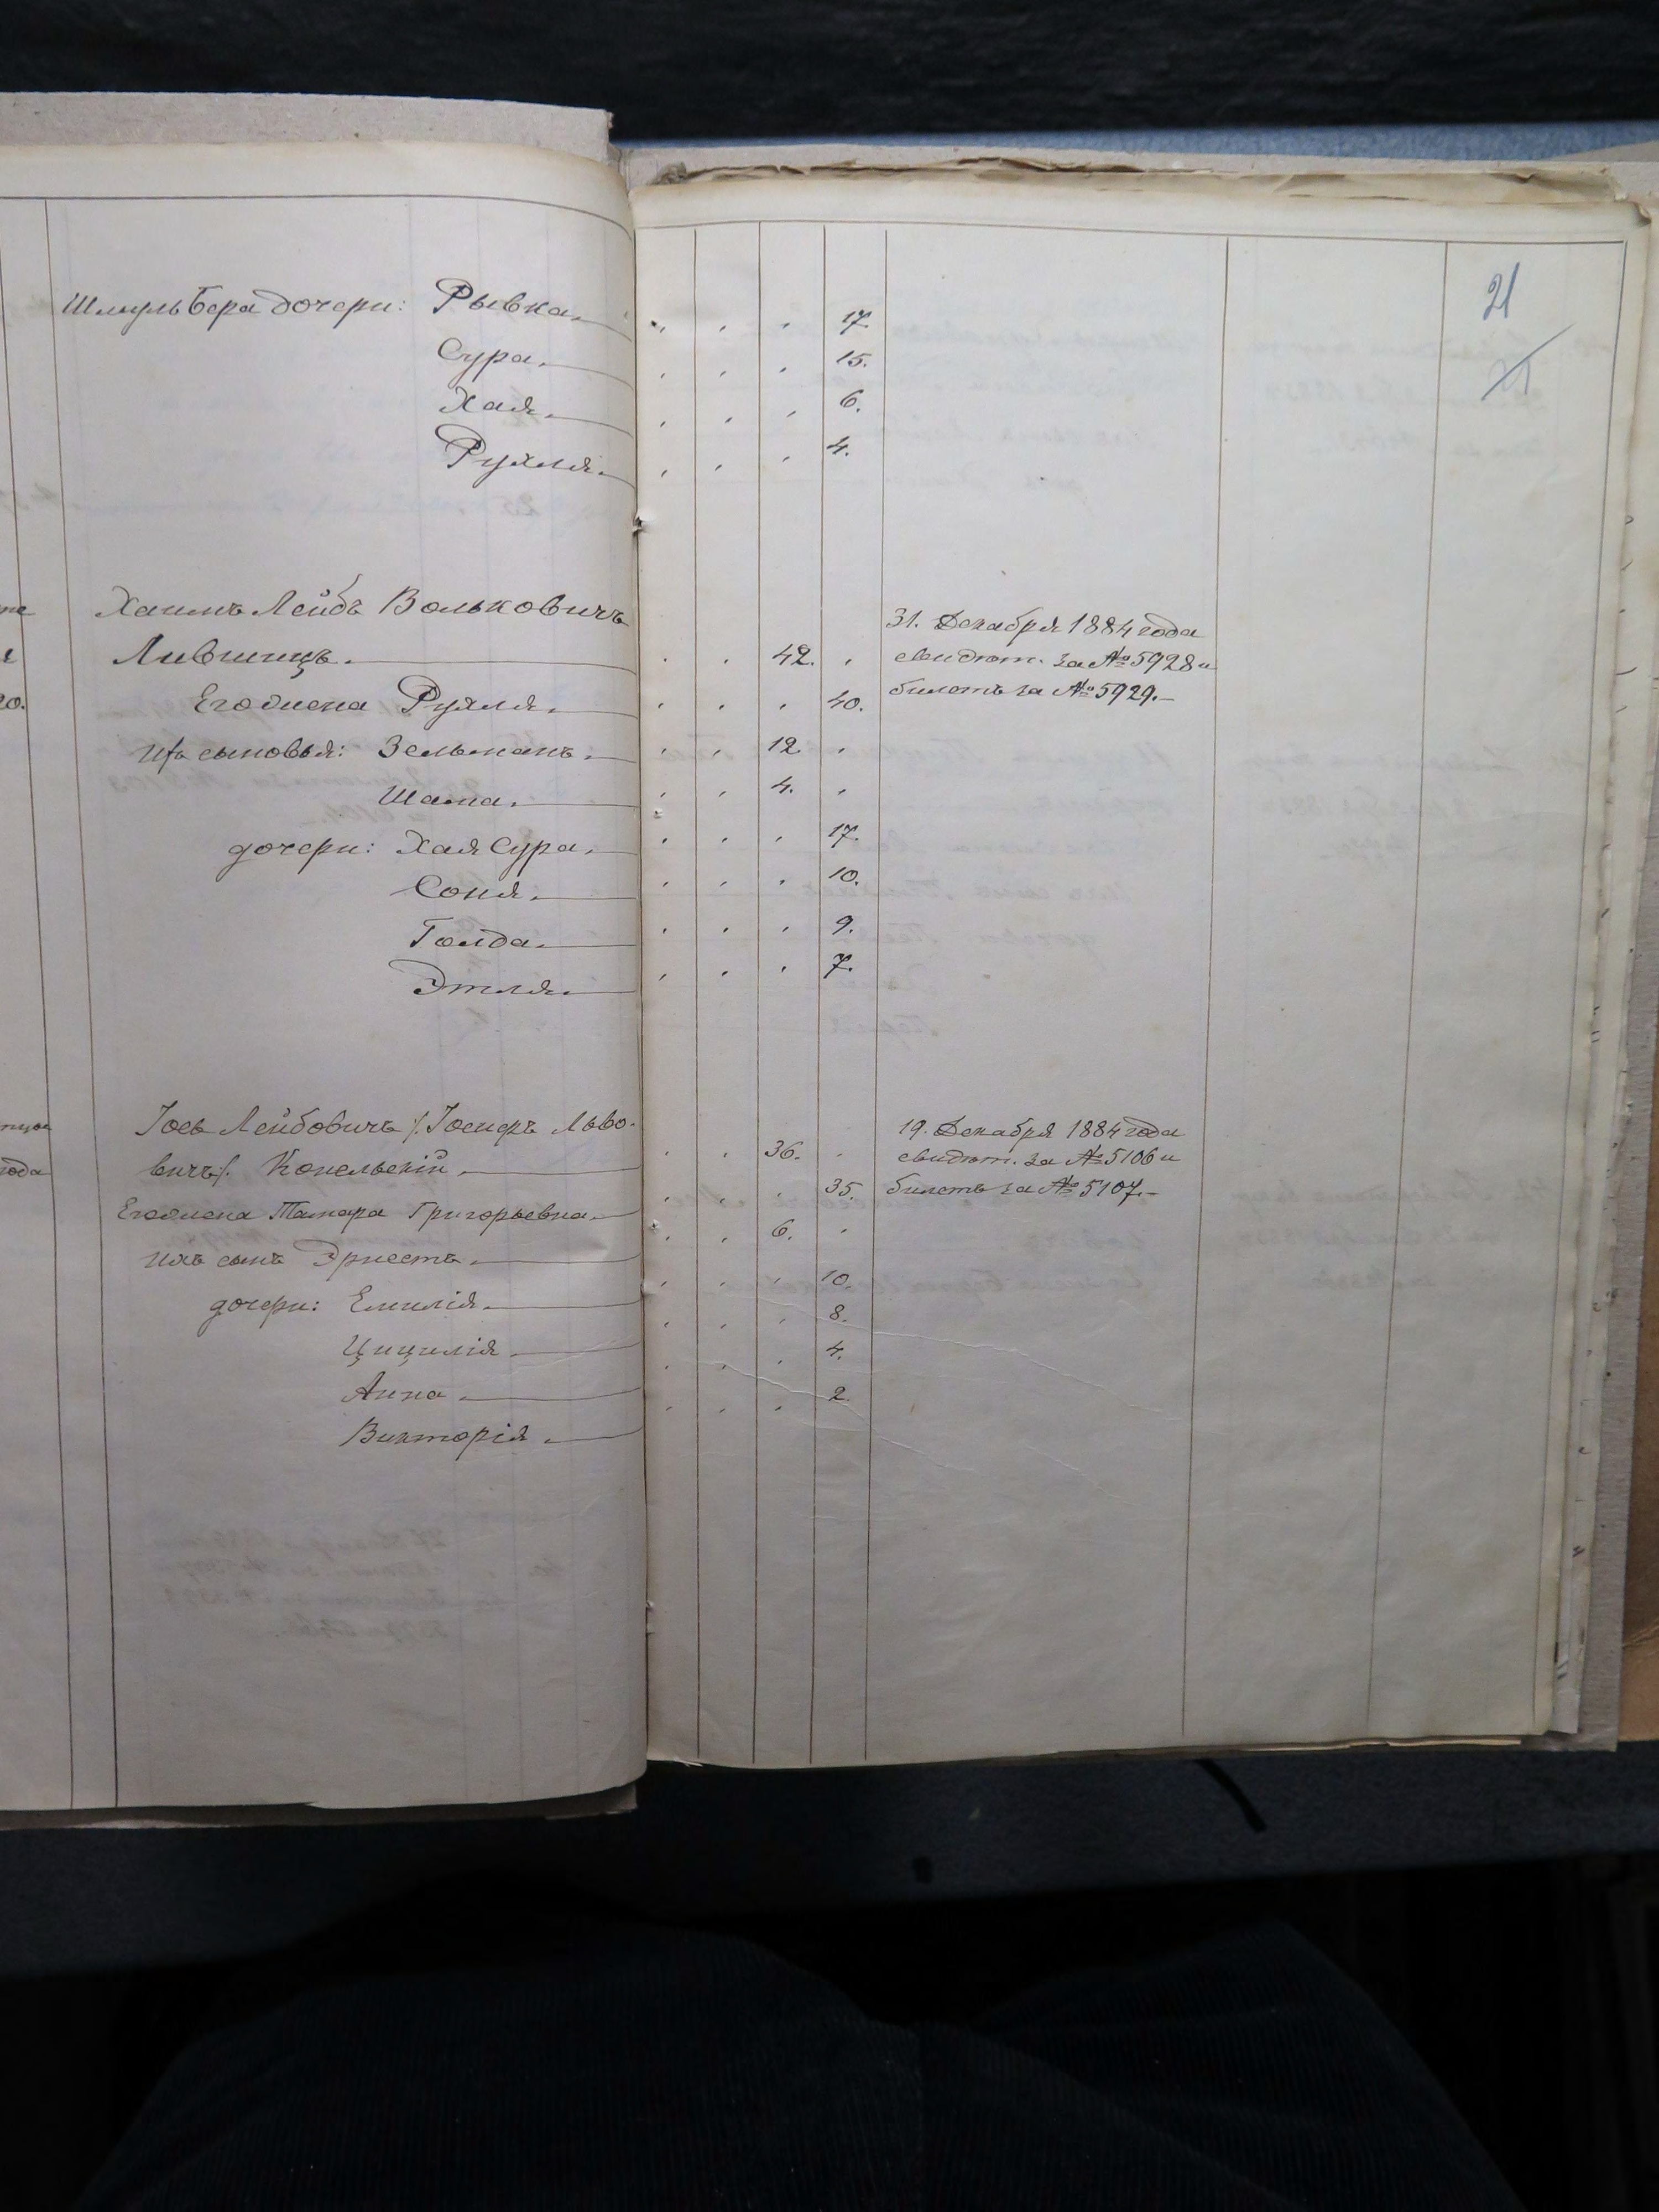 21
21
Шмуль Бера дочери: Рывка. " " " 17.
Сура. " " " 15.
Хая. " " " 6.
Рухля. " " " 4.
Хаимъ Лейбъ Вольковичъ 31. Декабря 1884 года
Лившицъ. " " 42. " свидѣт. за № 5928 и
20. Его жена Рухля. " " " 40. билетъ за № 5929.
Ихъ сыновья: Зельманъ. " " 12. "
Шама. " " 4. "
дочери: Хая Сура. " " " 17.
Соня. " " " 10.
Голда. " " " 9.
Этля. " " " 7.
Іось Лейбовичъ /: Іосифъ Льво- 19. Декабря 1884 года
года вичъ /. Копельскій. " " 36. " свидѣт. за № 5106 и
Его жена Тамара Григорьевна. " " " 35. билетъ за № 5107.
Ихъ сынъ Эрнестъ. " " 6. "
дочери: Емилія. " " " 10.
Цицилія. " " " 8.
Анна. " " " 4.
Викторія. " " " 2.